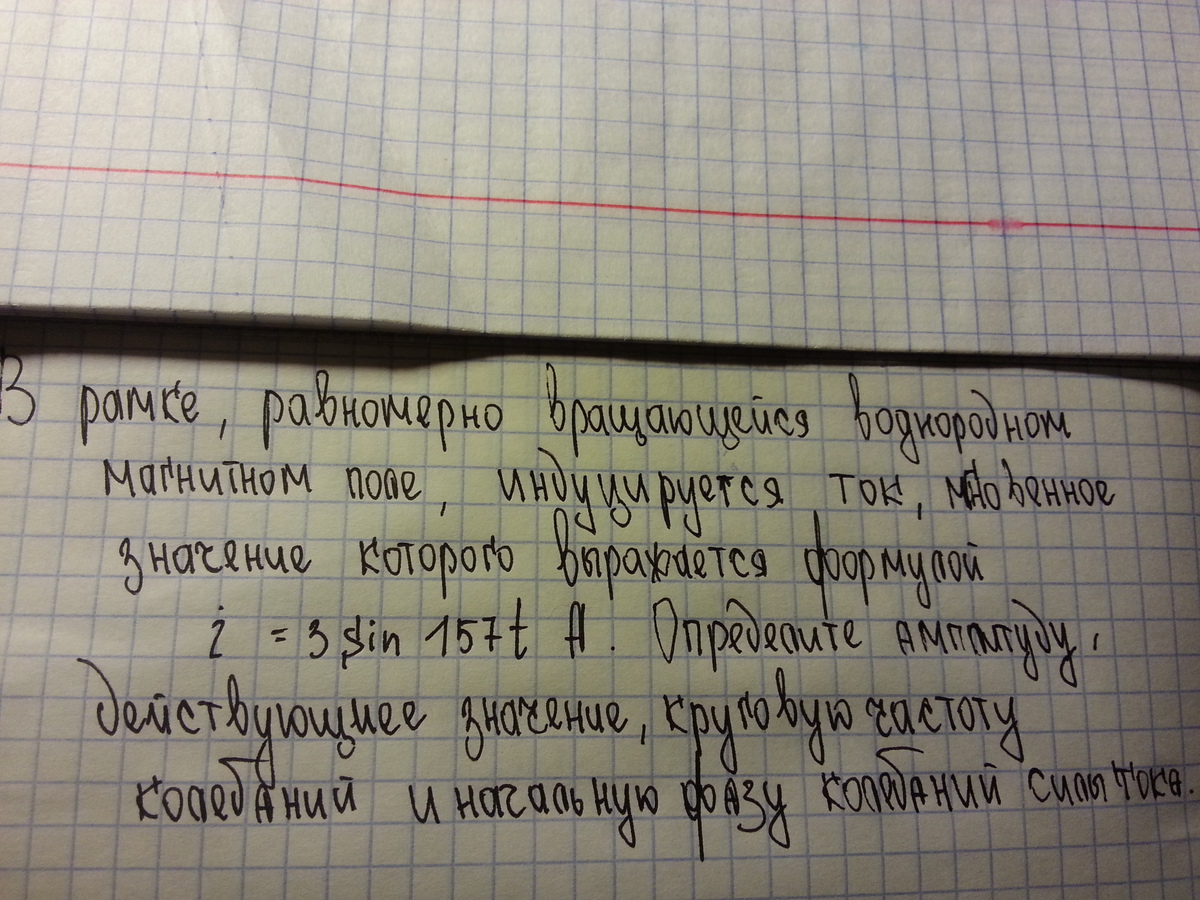 В рамке, равномерно вращающейся в однородном
магнитном поле, индуцируется ток, мгновенное
значение которого выражается формулой
i = 3 sin 157t А. Определите амплитуду,
действующее значение, круговую частоту
колебаний и начальную фазу колебаний силы тока.